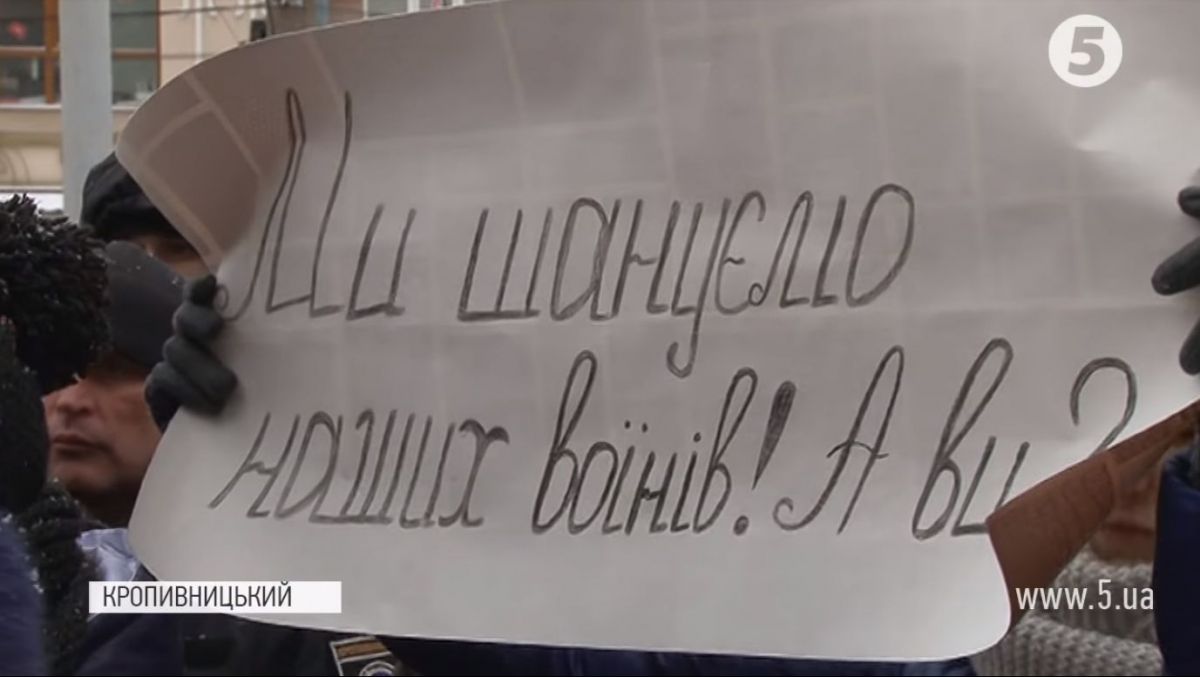 5
Ми шануємо
наших воїнів! А ви?
КРОПИВНИЦЬКИЙ
www.5.ua